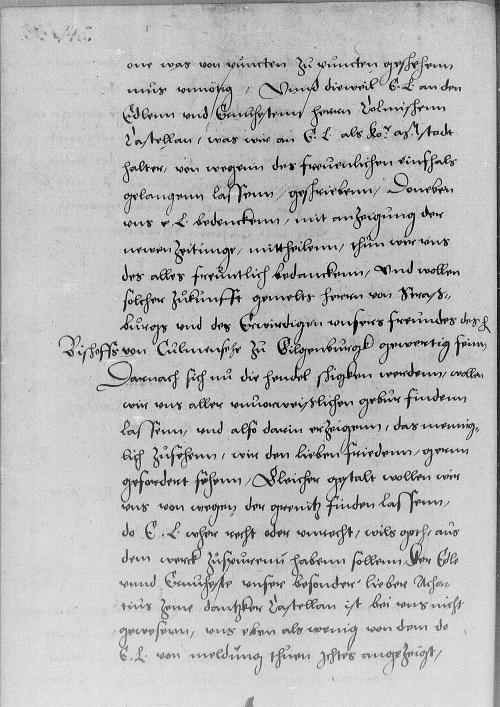 one was von puncten zu puncten geschehenn
mus vnnötig / Vnnd dieweil E. L. an den
Edlenn vnd Ernuhestenn herrn Colmischenn
Castellan, was wir an E. L. als Ko.r
halter, von wegenn des freuenlichen einfhals
gelangenn lassenn / geschriebenn, Doneben
vns e. L. bedenckenn / mit anzeigung der
newen Zeitunge, mittheilenn / thun wir vns
des alles freuntlich bedanckenn, Vnd wollen
solcher zukunfft gemelts herrn von Straß-
burgs vnd des Erwirdigen vnsers freundes des h.
Bischoffs von Culmensehe zu Gilgenburgk gewertig seinn,
Darnach sich nu die hendel schigken werdenn, wollen
wir vns aller vnuorweißlichen gebur findenn
lassenn, vnd also darin erzeigenn, das mennig-
lich zusehenn, wir den lieben friedenn / gernn
gefordert sehenn / Gleicher gestalt wollen wir
vns von wegen der grenitz finden lassenn,
do E. L. wher recht oder vnrecht, wils goth, aus
dem werck zuspurenn habenn sollenn. Der Edle
vnnd Ernuheste vnser besonder lieber Acha-
tius Zeme dantzker Castellan ist bei vns nicht
gewesenn, vns eben als wenig von dem do
E. L. von meldung thuen ichtes angezeigt,